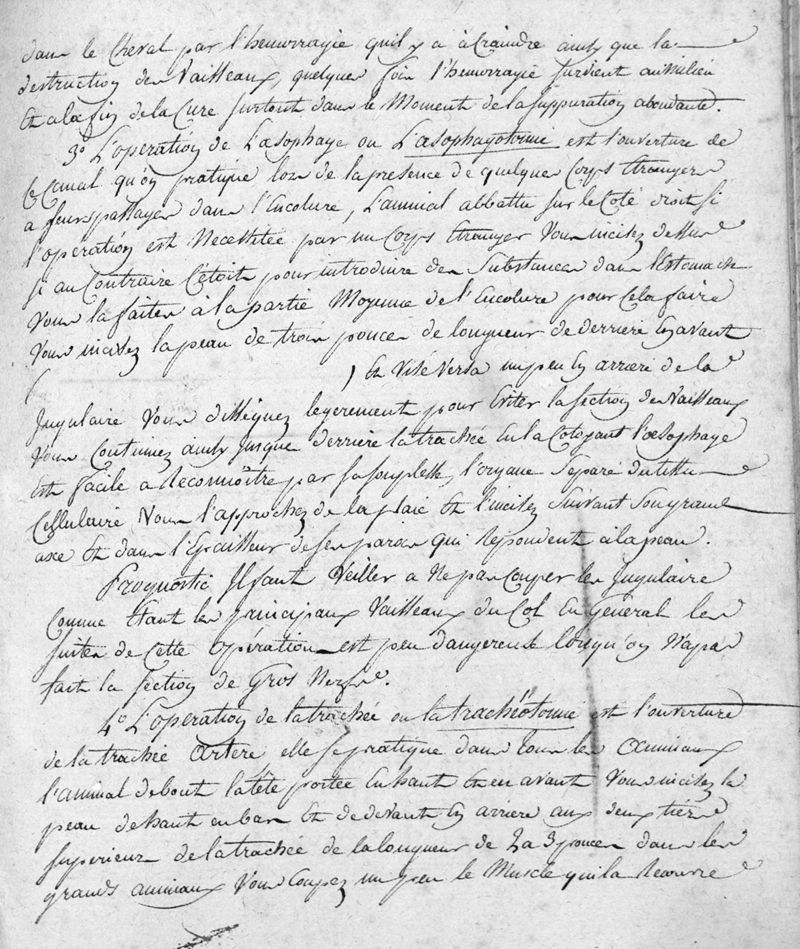 dans le Cheval par l'hemorragie quil y a à Craindre ainsy que la
destruction des Vaisseaux, quelques fois l'hemorragie survient au milieu
Et a la fin de la Cure surtout dans le Moment de la suppuration abondante.
3° L'operation de L'œsophage ou L'œsophagotomie est l'ouverture de
Ce Canal qu'on pratique lors de la presence de quelques Corps Etrangers
a leurs passages dans l'Encolure, L'animal abbattu sur le Coté droit si
l'operation est Necessitée par un Corps Etranger Vous incisez dessus
si au Contraire C'étoit pour introduire des Substances dans l'Estomach
Vous la faites à la partie Moyenne de l'Encolure pour Cela faire
Vous incisez la peau de trois pouces de longueur de derriere En avant
( ) Et Visé Versa un peu En arriere de la
Jugulaire Vous dissequez legerement pour Eviter la section des Vaisseaux
Vous Continuez ainsy jusque derriere la trachée En la Cotoyant l'œsophage
Est facile a Reconnoître par sa souplesse, l'organe Séparé du tissu
Cellulaire Vous l'approchez de la plaie Et l'incisez Suivant Son grand
axe Et dans l'Epaisseur de ses parois qui Repondent à la peau.
Prognostic Il faut Veiller a Ne pas Couper les Jugulaire
Comme Etant les principaux Vaisseaux du Col En General les
suites de Cette opération est peu dangereuse lorsqu'on N'a pas
fait la section de Gros Nerfs.
4° L'operation de la trachée ou la trachéotomie est l'ouverture
de la trachée artere elle se pratique dans tous les animaux
l'animal debout la tête portée En haut Et en avant Vous incisez la
peau de haut en bas Et de devant En arriere aux deux tiers
superieurs de la trachée de la longueur de 2 a 3 pouces dans les
grands animaux Vous Coupez un peu le Muscle qui la Recouvre